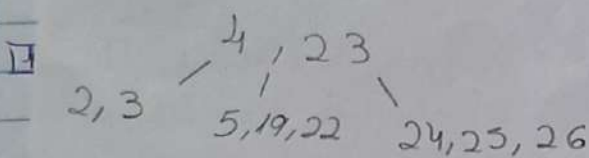 4, 23
2, 3
5, 19, 22
24, 25, 26